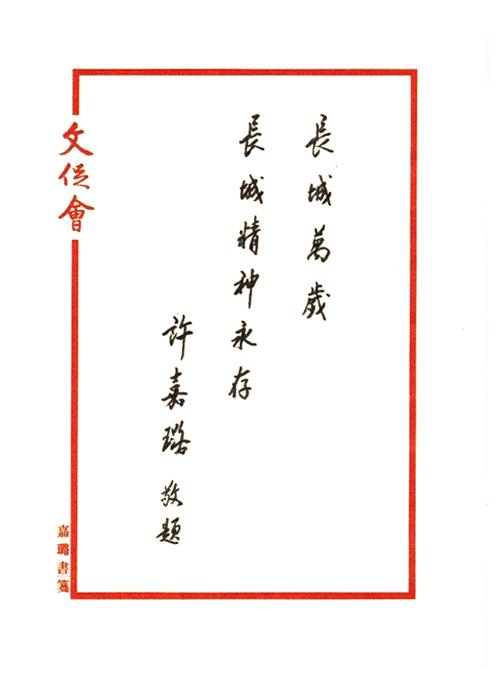 長城萬歲
長城精神永存
許嘉璐 敬題
文促會
嘉璐書箋